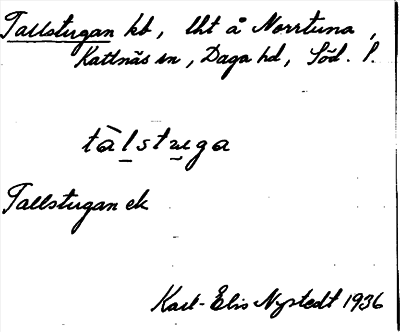 Tallstugan kb, lht å Norrtuna,
Kattnäs sn, Daga hd, Söd. l.
tàlstuga
Tallstugan ek
Karl-Elis Nystedt 1936